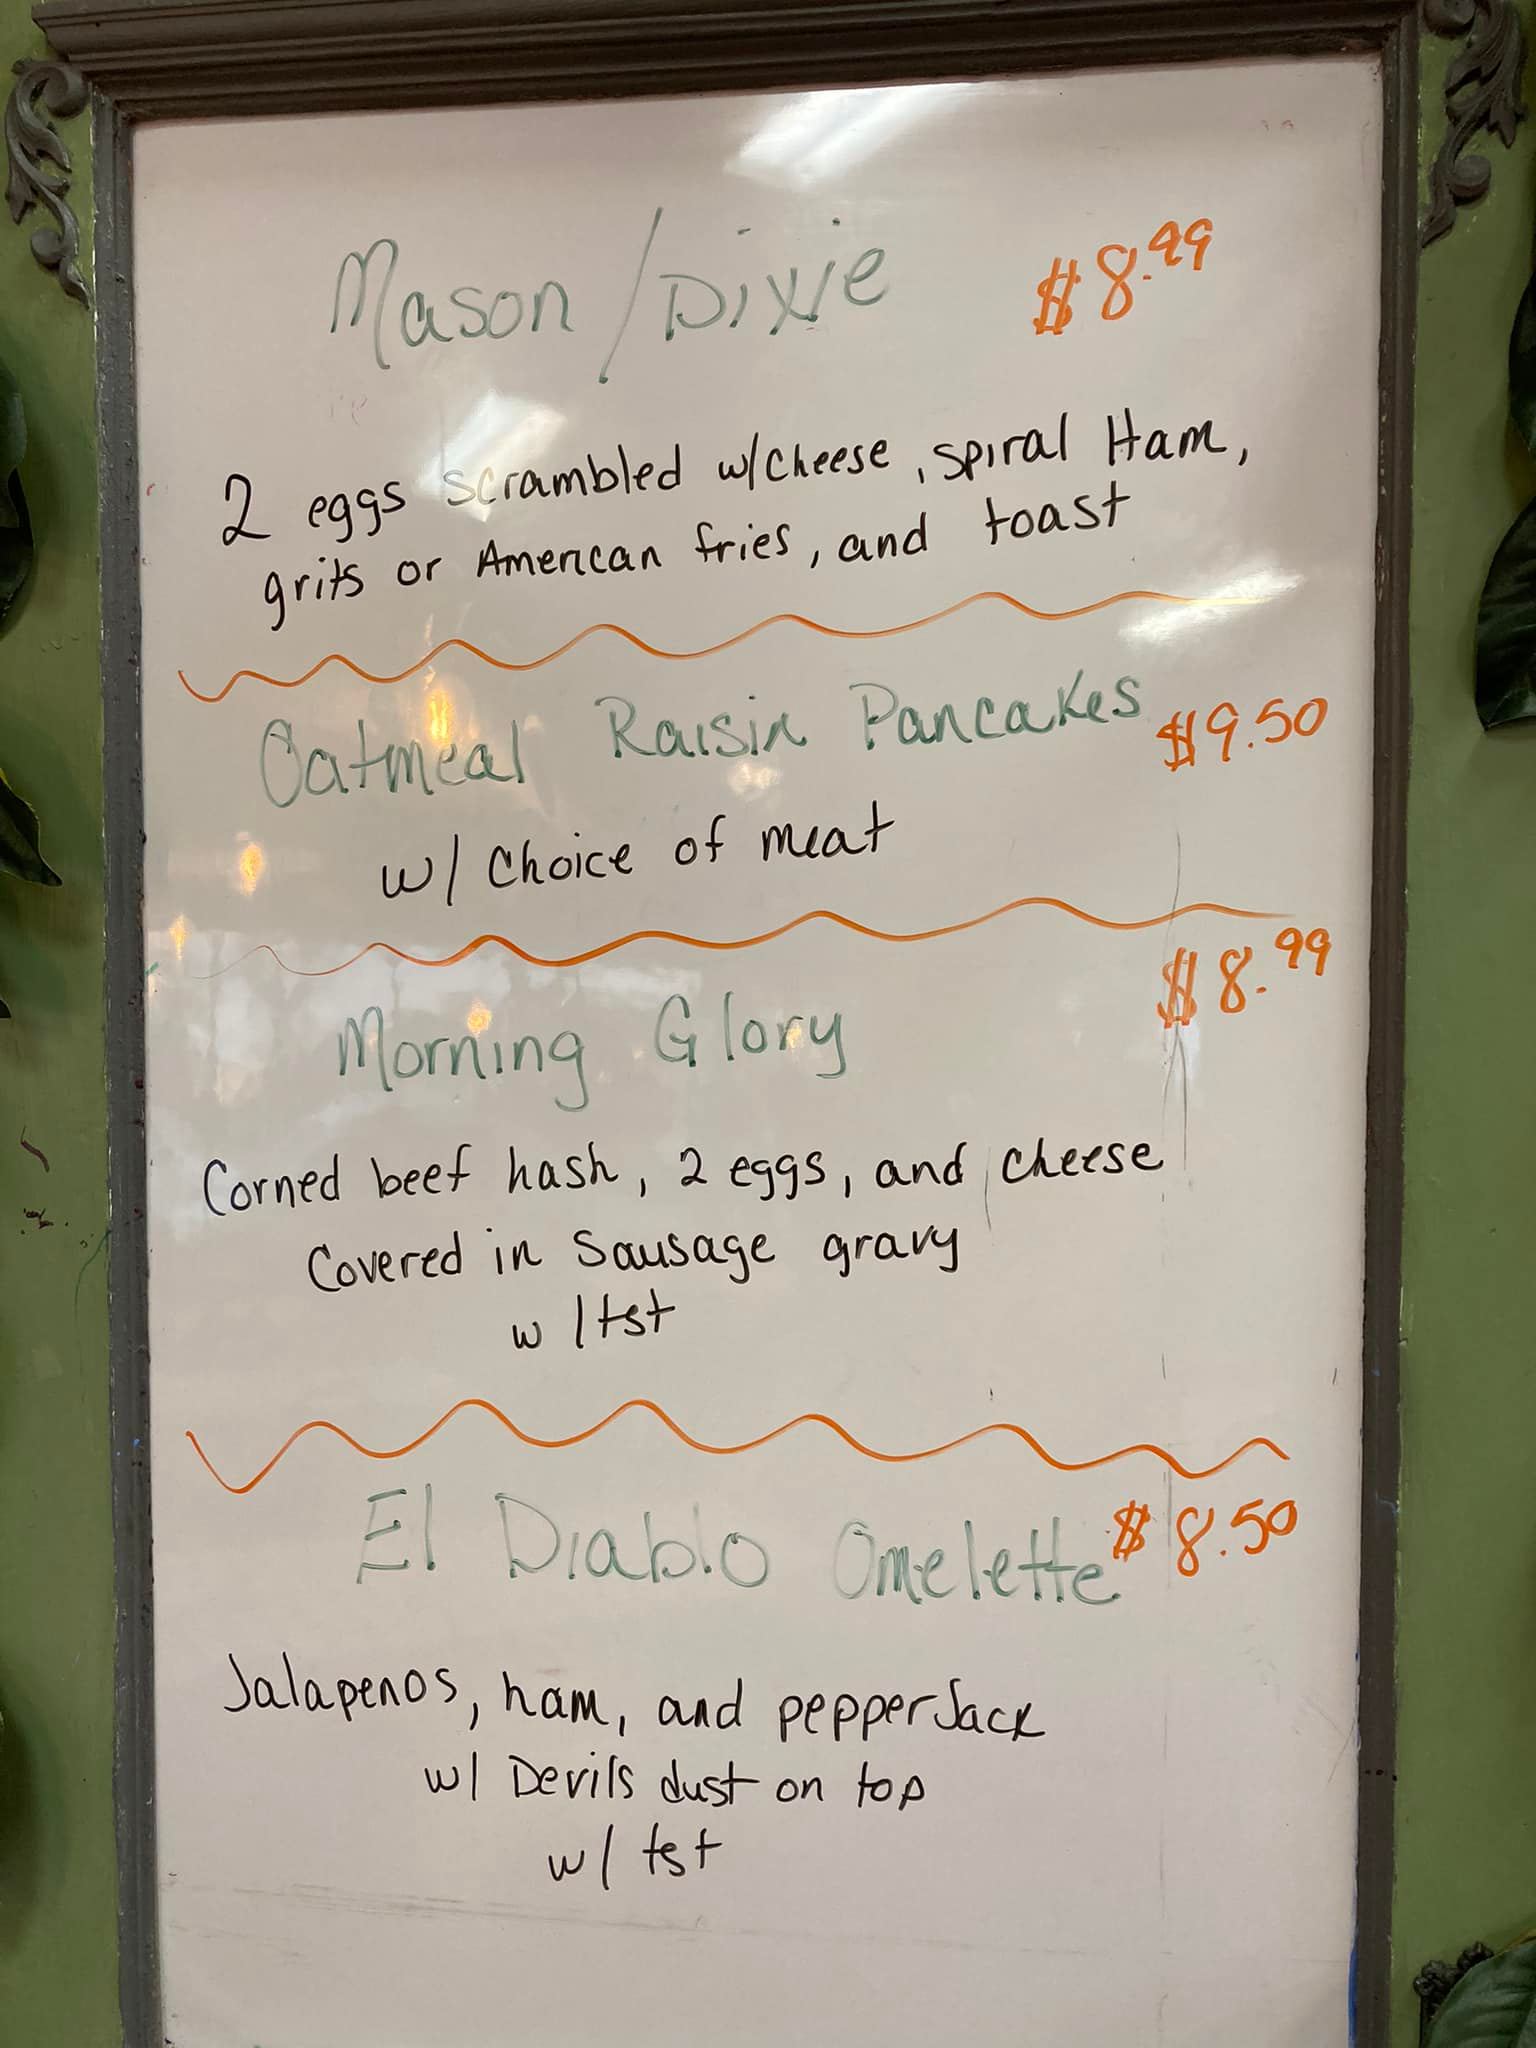 Mason/Dixie $8.99
2 eggs scrambled w/cheese, spiral Ham,
grits or American fries, and toast
Oatmeal Raisin Pancakes $9.50
w/ Choice of meat
$8.99
Morning Glory
Corned beef hash, 2 eggs, and cheese
Covered in Sausage gravy
w/tst
El Diablo Omelette $8.50
Jalapenos, ham, and pepperJack
w/ Devils dust on top
w/ tst